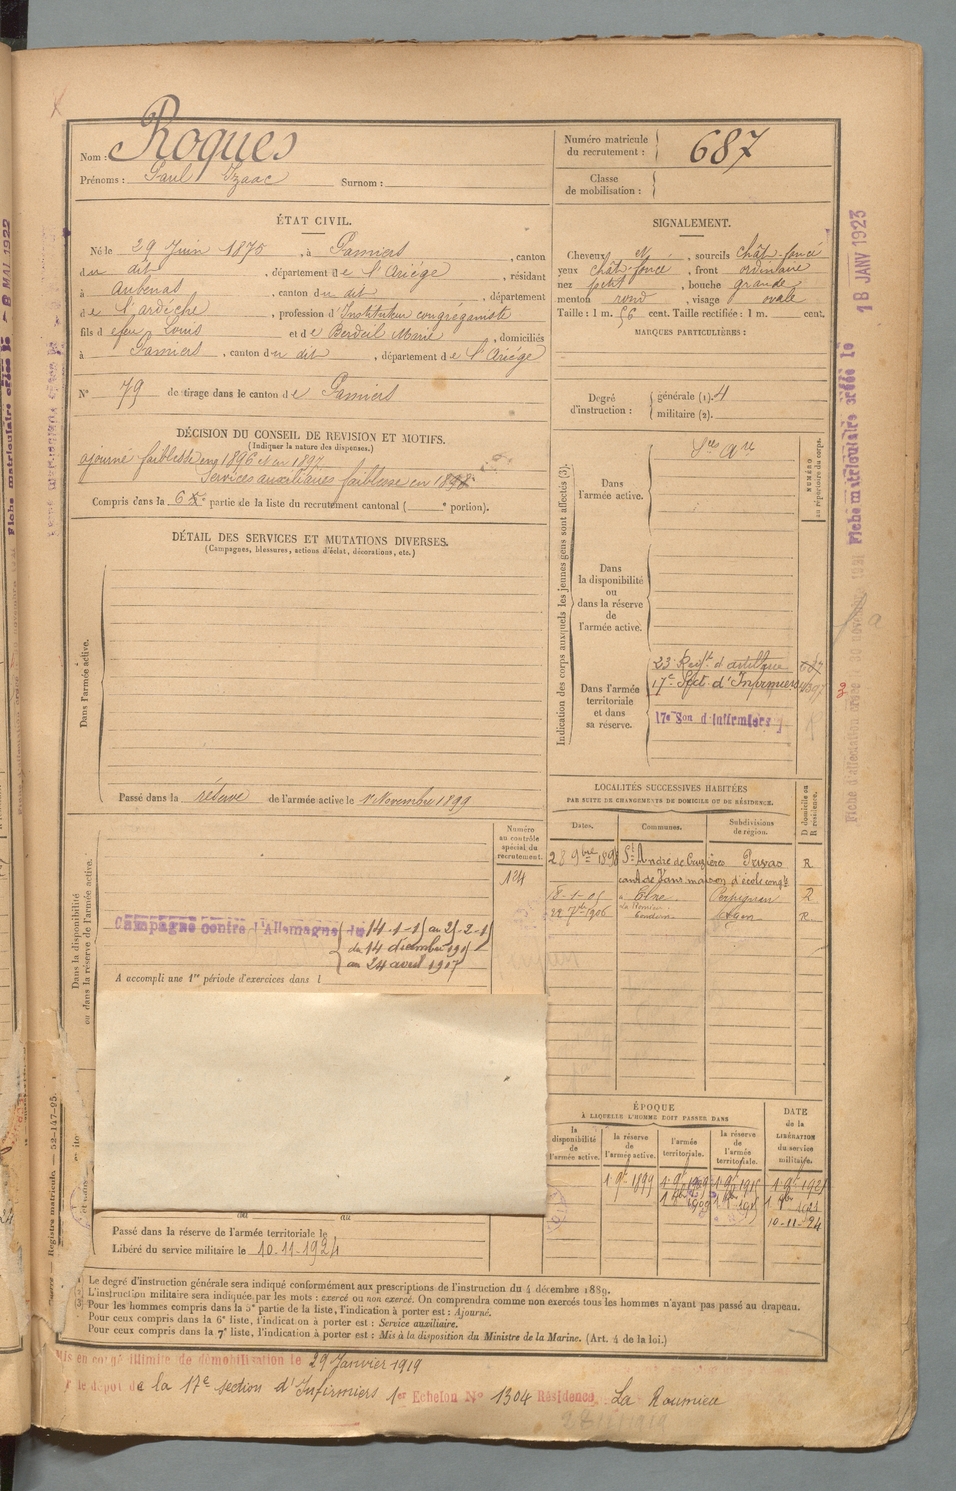 Nom : Roques
Prénoms : Paul Izaac Surnom :
Numéro matricule
du recrutement : 687
Classe
de mobilisation :
ÉTAT CIVIL.
Né le 29 Juin 1875, à Pamiers, canton
du dit, département de l'Ariége, résidant
à Aubenas, canton du dit, département
de l'Ardèche, profession d'Instituteur congréganiste
fils de feu Louis et de Berdeil Marie, domiciliés
à Pamiers, canton du dit, département de l'Ariége
N° 79 de tirage dans le canton de Pamiers
SIGNALEMENT.
Cheveux, sourcils chât-foncé
yeux chât-foncé, front ordinaire
nez petit, bouche grande
menton rond, visage ovale
Taille : 1 m. 56 cent. Taille rectifiée : 1 m. cent.
MARQUES PARTICULIÈRES :
Degré
d'instruction :
générale (1). 4
militaire (2).
DÉCISION DU CONSEIL DE REVISION ET MOTIFS.
(Indiquer la nature des dispenses.)
ajourné faiblesse en 1896 et en 1897
Services auxiliaires faiblesse en 1898
Compris dans la 6e partie de la liste du recrutement cantonal ( e portion).
DÉTAIL DES SERVICES ET MUTATIONS DIVERSES.
(Campagnes, blessures, actions d'éclat, décorations, etc.)
Dans l'armée active.
Passé dans la réserve de l'armée active le 1er Novembre 1899
Indication des corps auxquels les jeunes gens sont affectés (3).
NUMÉRO
au répertoire du corps.
Dans
l'armée active.
Dans
la disponibilité
ou
dans la réserve
de
l'armée active.
Dans l'armée
territoriale
et dans
sa réserve.
23 Regt d'artillerie
17e Sect. d'Infirmiers
17e Son d'Infirmiers
LOCALITÉS SUCCESSIVES HABITÉES
PAR SUITE DE CHANGEMENTS DE DOMICILE OU DE RÉSIDENCE.
D domicile ou
R résidence.
Dates. Communes. Subdivisions
de région.
28 9bre 1898 St André de Cruzières Privas R
cant de Vans maison d'école congte
Elne Perpignan
22 7bre 1906 La Romieu Agen R
Condom
Dans la disponibilité
ou dans la réserve de l'armée active.
Numéro
au contrôle
spécial du
recrutement.
124
Campagne contre l'Allemagne
du 14 décembre
au 24 avril 1917
A accompli une 1re période d'exercices dans l
ÉPOQUE
À LAQUELLE L'HOMME DOIT PASSER DANS
la
disponibilité
de
l'armée active.
la réserve
de
l'armée active.
l'armée
territoriale.
la réserve
de
l'armée
territoriale.
DATE
de la
LIBÉRATION
du service
militaire.
1 9e 1899
10-11-24
Passé dans la réserve de l'armée territoriale le
Libéré du service militaire le 10.11.1924
Le degré d'instruction générale sera indiqué conformément aux prescriptions de l'instruction du 4 décembre 1889.
L'instruction militaire sera indiquée par les mots : exercé ou non exercé. On comprendra comme non exercés tous les hommes n'ayant pas passé au drapeau.
Pour les hommes compris dans la 5e partie de la liste, l'indication à porter est : Ajourné.
Pour ceux compris dans la 6e liste, l'indication à porter est : Service auxiliaire.
Pour ceux compris dans la 7e liste, l'indication à porter est : Mis à la disposition du Ministre de la Marine. (Art. 4 de la loi.)
Mis en congé illimité de démobilisation le 29 Janvier 1919
le dépôt de la 17e section d'Infirmiers 1er Echelon N° 1304 Résidence La Roumieu
Registre matricule — 52-147-95.
Fiche matriculaire créée le 18 JANV 1923
8 MAI 1922